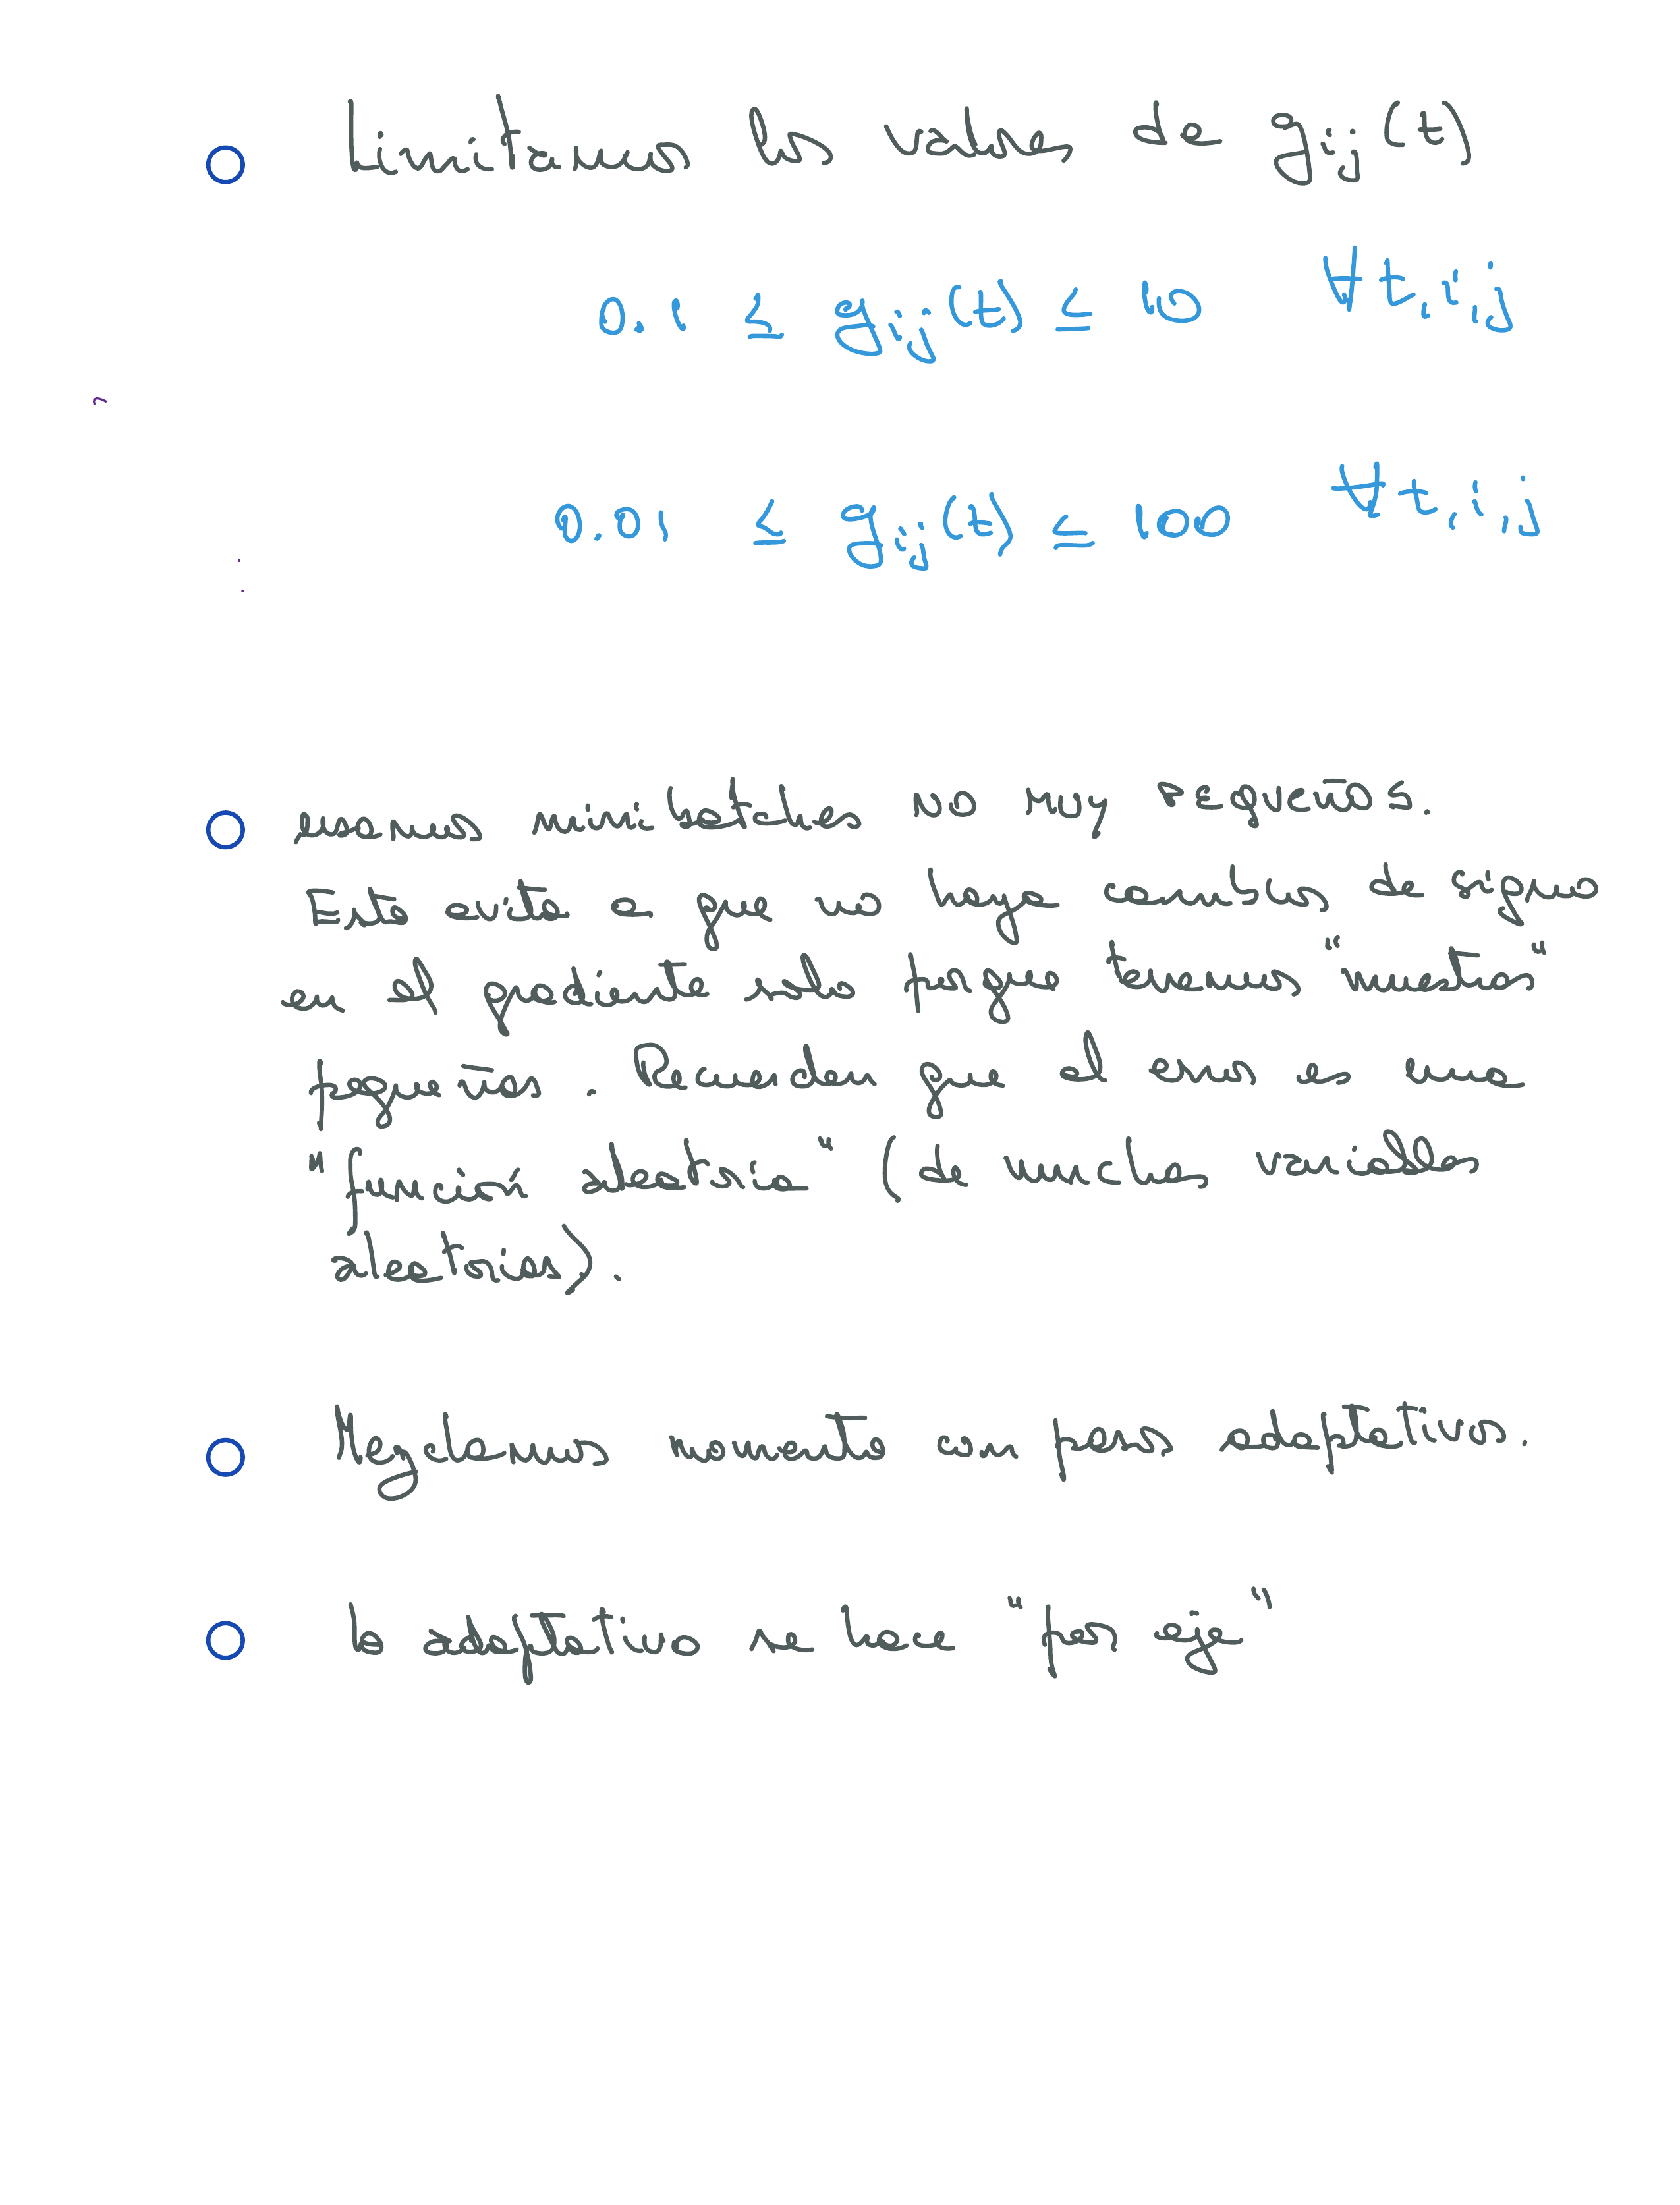 Limitamos los valores de gij(t)
0.1 ≤ gij(t) ≤ 10 ∀t,i,j
0.01 ≤ gij(t) ≤ 100 ∀t,i,j
usamos minibatches NO MUY PEQUEÑOS.
Esto evita a que no haya cambios de signo
en el gradiente solo porque tenemos "muestras"
pequeñas. Recuerden que el error es una
"función aleatoria" (de muchas variables
aleatorias).
Mezclamos momento con pasos adaptativos.
lo adaptativo se hace "por eje"